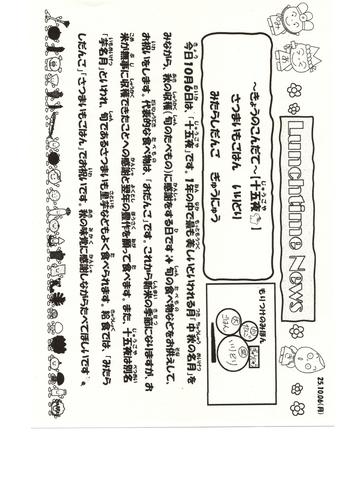 Lunchtime News
25.10.06(月)
～きょうのこんだて～【十五夜】
さつまいもごはん いりどり
みたらしだんご ぎゅうにゅう
もりつけのみほん
いりどり
今日10月6日は、「十五夜」です。1年の中で最も美しいといわれる月「中秋の名月」を
みながら、秋の収穫(旬のたべもの)に感謝をする日です✨旬の食べ物などをお供えして、
お祝いをします。代表的な食べ物は、「おだんご」です。これから新米の季節になりますが、お
米が無事に収穫できたことへの感謝と翌年の豊作を願って食べます。また、十五夜は別名
「芋名月」といわれ、旬であるさつまいも、里芋などもよく食べられます。給食では、「みたら
しだんご」「さつまいもごはん」でお祝いです。秋の味覚に感謝しながらたべてほしいです。